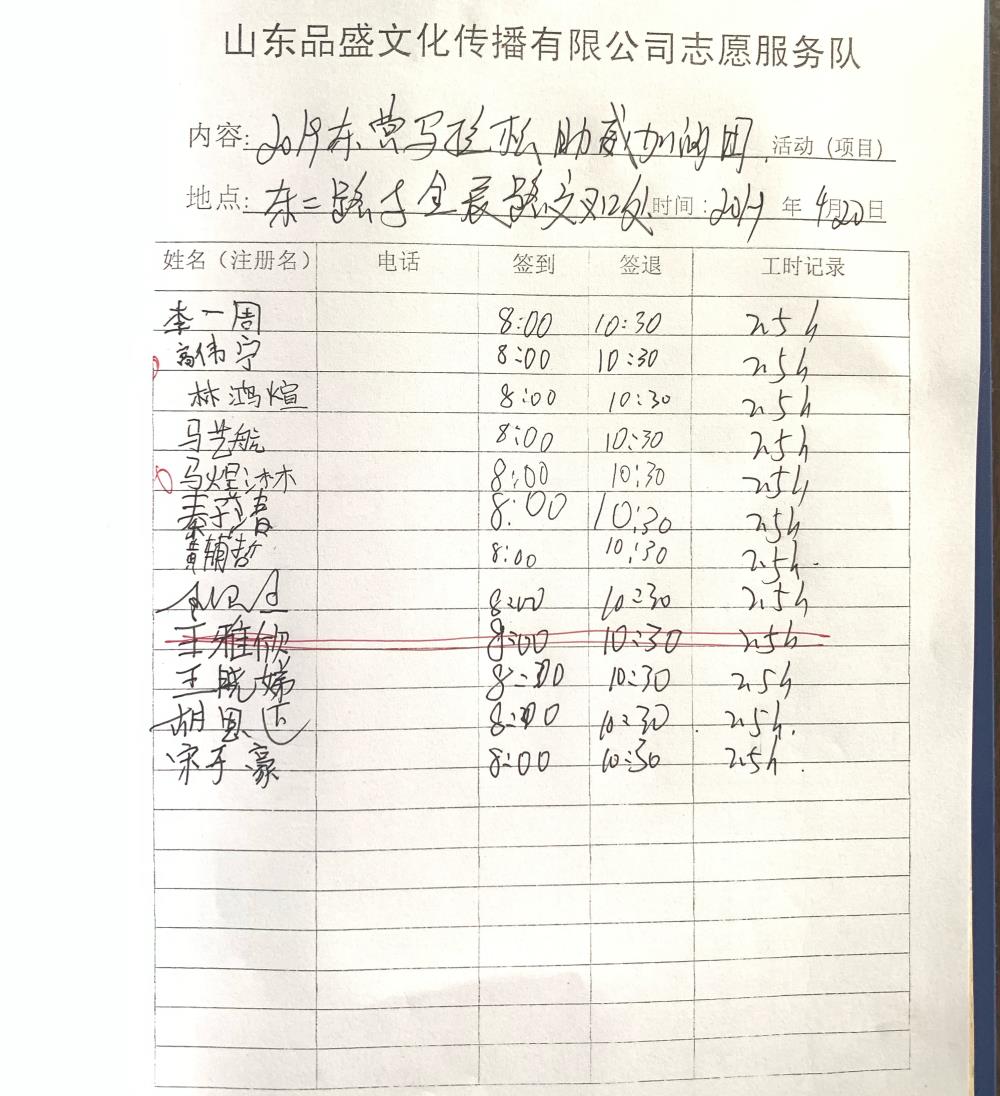 山东品盛文化传播有限公司志愿服务队
内容:2019东营马拉松助威加油团.活动(项目)
地点:东二路与金辰路交叉口处时间:2019年4月20日
姓名(注册名) 电话 签到 签退 工时记录
李一周 8:00 10:30 2.5h
高伟宁 8:00 10:30 2.5h
林鸿煊 8:00 10:30 2.5h
马艺航 8:00 10:30 2.5h
马煜沐 8:00 10:30 2.5h
秦子睿 8:00 10:30 2.5h
黄辅哲 8:00 10:30 2.5h.
8:00 10:30 2.5h
王雅欣 8:00 10:30 2.5h
王晓娣 8:00 10:30 2.5h
胡恩 8:00 10:30 2.5h.
宋子豪 8:00 10:30 2.5h.